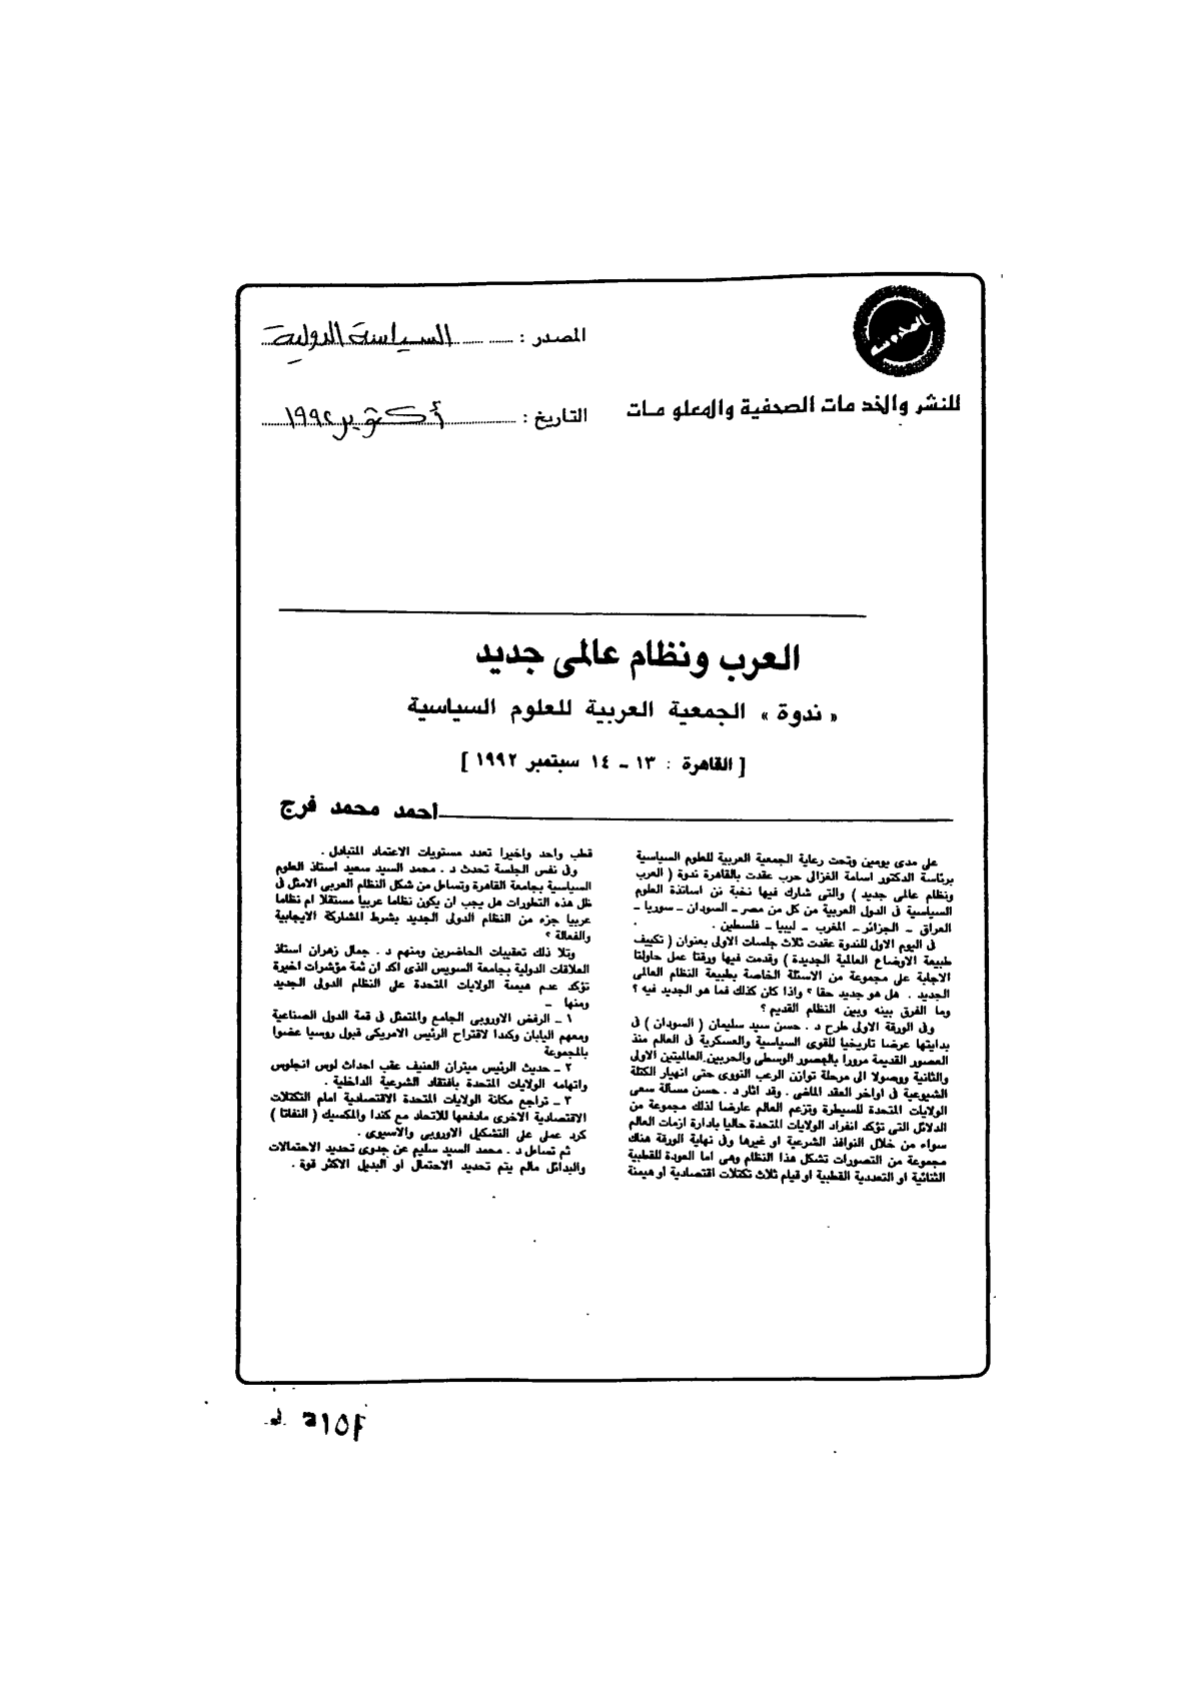 المصدر : السياسة الدولية
للنشر والخدمات الصحفية والمعلومات
التاريخ : أكتوبر ١٩٩٢
العرب ونظام عالمى جديد
« ندوة » الجمعية العربية للعلوم السياسية
[ القاهرة : ١٣ – ١٤ سبتمبر ١٩٩٢ ]
احمد محمد فرج
على مدى يومين وتحت رعاية الجمعية العربية للعلوم السياسية
برئاسة الدكتور اسامة الغزالى حرب عقدت بالقاهرة ندوة ( العرب
ونظام عالمى جديد ) والتى شارك فيها نخبة نن اساتذة العلوم
السياسية فى الدول العربية من كل من مصر – السودان – سوريا –
العراق – الجزائر – المغرب – ليبيا – فلسطين .
فى اليوم الاول للندوة عقدت ثلاث جلسات الاولى بعنوان ( تكييف
طبيعة الاوضاع العالمية الجديدة ) وقدمت فيها ورقتا عمل حاولتا
الاجابة على مجموعة من الاسئلة الخاصة بطبيعة النظام العالمى
الجديد . هل هو جديد حقا ؟ واذا كان كذلك فما هو الجديد فيه ؟
وما الفرق بينه وبين النظام القديم ؟
وفى الورقة الاولى طرح د . حسن سيد سليمان ( السودان ) فى
بدايتها عرضا تاريخيا للقوى السياسية والعسكرية فى العالم منذ
العصور القديمة مرورا بالعصور الوسطى والحربين العالميتين الاولى
والثانية ووصولا الى مرحلة توازن الرعب النووى حتى انهيار الكتلة
الشيوعية فى اواخر العقد الماضى . وقد اثار د . حسن مسألة سعى
الولايات المتحدة للسيطرة وتزعم العالم عارضا لذلك مجموعة من
الدلائل التى تؤكد انفراد الولايات المتحدة حاليا بادارة ازمات العالم
سواء من خلال النوافذ الشرعية او غيرها وفى نهاية الورقة هناك
مجموعة من التصورات تشكل هذا النظام وهى اما العودة للقطبية
الثنائية او التعددية القطبية او قيام ثلاث تكتلات اقتصادية او هيمنة
قطب واحد واخيرا تعدد مستويات الاعتماد المتبادل .
وفى نفس الجلسة تحدث د . محمد السيد سعيد استاذ العلوم
السياسية بجامعة القاهرة وتساءل من شكل النظام العربى الامثل فى
ظل هذه التطورات هل يجب ان يكون نظاما عربيا مستقلا ام نظاما
عربيا جزء من النظام الدولى الجديد بشرط المشاركة الايجابية
والفعالة ؟
وتلا ذلك تعقيبات الحاضرين ومنهم د . جمال زهران استاذ
العلاقات الدولية بجامعة السويس الذى اكد ان ثمة مؤشرات اخيرة
تؤكد عدم هيمنة الولايات المتحدة على النظام الدولى الجديد
ومنها –
١ – الرفض الاوروبى الجامع والمتمثل فى قمة الدول الصناعية
ومعهم اليابان وكندا لاقتراح الرئيس الامريكى قبول روسيا عضوا
بالمجموعة
٢ – حديث الرئيس ميتران العنيف عقب احداث لوس انجلوس
واتهامه الولايات المتحدة بافتقاد الشرعية الداخلية .
٣ – تراجع مكانة الولايات المتحدة الاقتصادية امام التكتلات
الاقتصادية الاخرى مادفعها للاتحاد مع كندا والمكسيك ( النفاتا )
كرد عملى على التشكيل الاوروبى والاسيوى .
ثم تساءل د . محمد السيد سليم عن جدوى تحديد الاحتمالات
والبدائل مالم يتم تحديد الاحتمال او البديل الاكثر قوة .